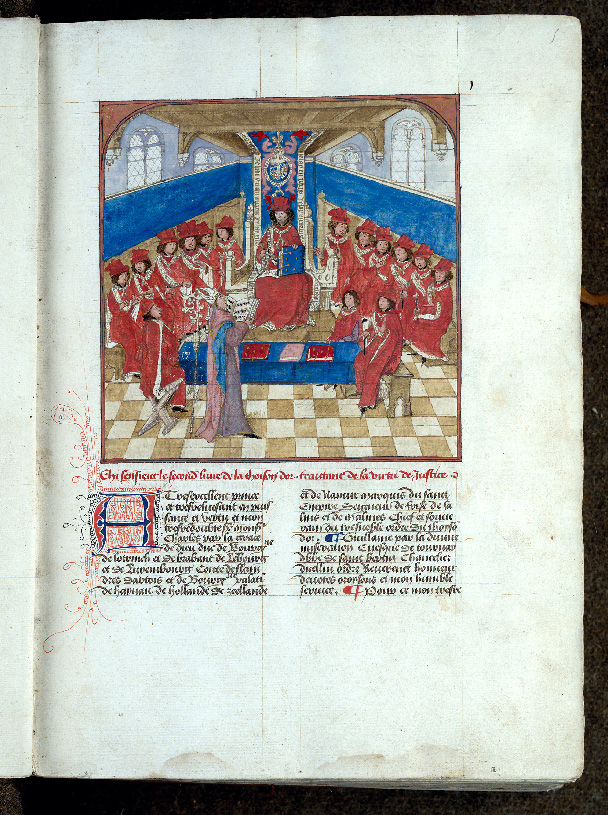 Chi sensieut le second livre de la thoison dor. traittant de la vertu de Justice.
Tresexcellent prince
et tresvertueux en puis
sance et vertu et mon
tresredoubte sr. monsr
Charles par la grace
de dieu duc de Bourgne
de lotrich et de brabant de lembourg
et de Luxembourg Conte de flan
dres dartois et de Bourgne palatin
de haynau de hollande de zeellande
et de Namur marquis du saint
Empire Seigneur de frise de sa
lins et de malines Chief et souve
rain du tresnoble ordre du thoison
dor. Guillaume par la divine
miseration Evesque de tournay
abbe de saint bertin Chancelier
dicellui ordre Reverence honneur
devotes orations et mon humble
service. Pour ce mon tresre